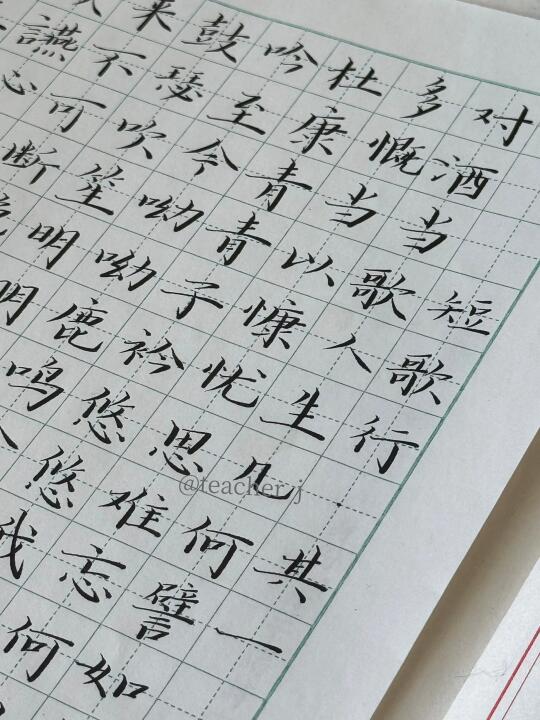 短歌行 其一
对酒当歌人生几何譬如
多慨当以慷忧思难忘何
杜康青青子衿悠悠我
吟至今呦呦鹿鸣
鼓瑟吹笙明明
来不可断
讌心
@teacher_j